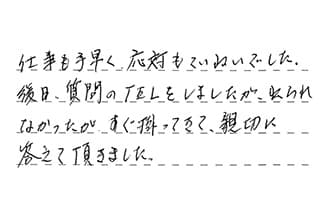 仕事も手早く、応対もていねいでした。
後日、質問のTELをしましたが、取られ
なかったが、すぐ掛ってきて、親切に
答えて頂きました。